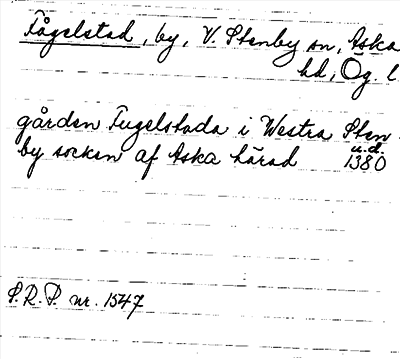 Fågelstad, by, V. Stenby sn, Aska
hd, Ög. l.
gården Fugelstada i Westra Sten-
by socken af Aska härad u.d. 1380
S.R.P. nr. 1547